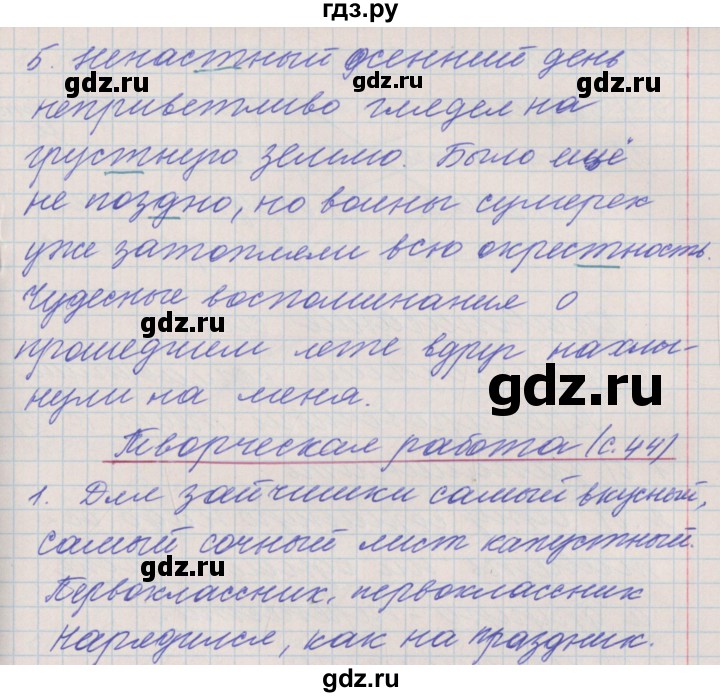 гдз.ру
5. Ненастный осенний день
gdz.ru gdz.ru
неприветливо глядел на
грустную землю. Было ещё
gdz.ru gdz.ru
не поздно, но волны сумерек
уже затопляли всю окрестность.
Чудесные воспоминания о
gdz.ru
прошедшем лете вдруг нахлы-
gdz.ru
нули на меня.
Творческая работа (с. 44)
1. Для зайчишки самый вкусный,
самый сочный лист капустный.
gdz.ru gdz.ru
Первоклассник, первоклассник
Нарядился, как на праздник.
gdz.ru gdz.ru